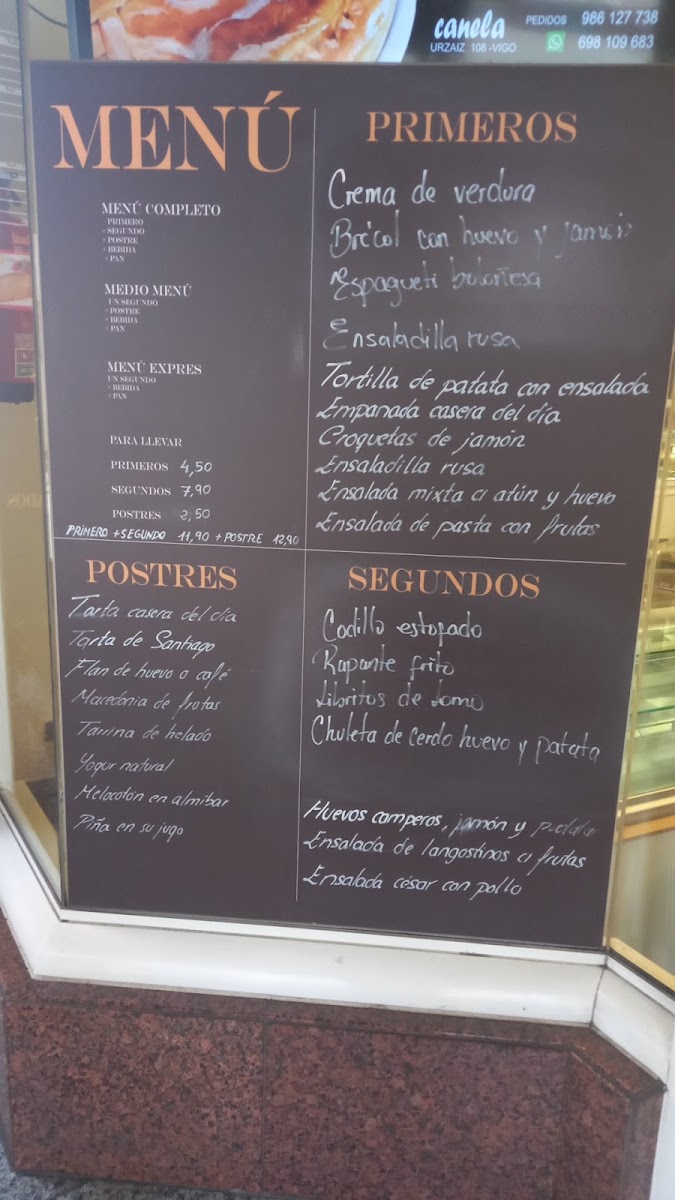 canela
PEDIDOS 986 127 738
URZAIZ 108 -VIGO
698 109 683
MENÚ
MENÚ COMPLETO
PRIMERO
+ SEGUNDO
+ POSTRE
+ BEBIDA
+ PAN
MEDIO MENÚ
UN SEGUNDO
+ POSTRE
+ BEBIDA
+ PAN
MENÚ EXPRES
UN SEGUNDO
+ BEBIDA
+ PAN
PARA LLEVAR
PRIMEROS 4,50
SEGUNDOS 7,90
POSTRES 2,50
PRIMERO + SEGUNDO 11,90 + POSTRE 12,90
PRIMEROS
Crema de verdura
Brécol con huevo y jamón
Espagueti boloñesa
Ensaladilla rusa
Tortilla de patata con ensalada
Empanada casera del día
Croquetas de jamón
Ensaladilla rusa
Ensalada mixta c/ atún y huevo
Ensalada de pasta con frutas
POSTRES
Tarta casera del día
Tarta de Santiago
Flan de huevo o café
Macedonia de frutas
Tarrina de helado
Yogur natural
Melocotón en almibar
Piña en su jugo
SEGUNDOS
Codillo estofado
Rapante frito
Libritos de lomo
Chuleta de cerdo huevo y patata
Huevos camperos, jamón y patata
Ensalada de langostinos c/ frutas
Ensalada césar con pollo